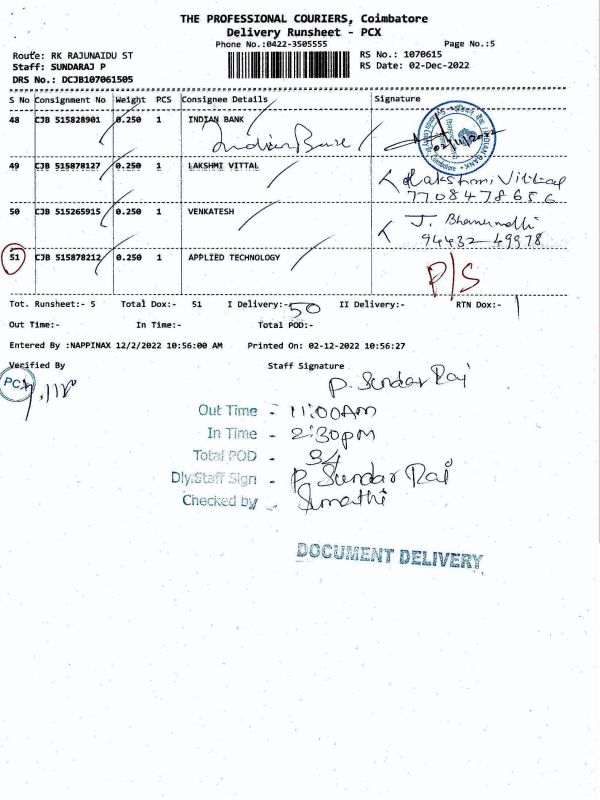 THE PROFESSIONAL COURIERS, Coimbatore
Delivery Runsheet - PCX
Phone No.:0422-3505555 Page No.:5
Route: RK RAJUNAIDU ST RS No.: 1070615
Staff: SUNDARAJ P RS Date: 02-Dec-2022
DRS No.: DCJB107061505
S No Consignment No Weight PCS Consignee Details Signature
48 CJB 515828901 0.250 1 INDIAN BANK
Indian Bank
02/11/2022
49 CJB 515878127 0.250 1 LAKSHMI VITTAL
Lakshmi Vittal
7708478656
50 CJB 515265915 0.250 1 VENKATESH
J.
94432-49978
51 CJB 515878212 0.250 1 APPLIED TECHNOLOGY
P/S
Tot. Runsheet:- 5 Total Dox:- 51 I Delivery:- 50 II Delivery:- RTN Dox:- 1
Out Time:- In Time:- Total POD:-
Entered By :NAPPINAX 12/2/2022 10:56:00 AM Printed On: 02-12-2022 10:56:27
Verified By Staff Signature
PCX
P. Sundar Raj
Out Time - 11:00AM
In Time - 2:30pm
Total POD - 34
Dly.Staff Sign - P. Sundar Raj
Checked by - Sumathi
DOCUMENT DELIVERY